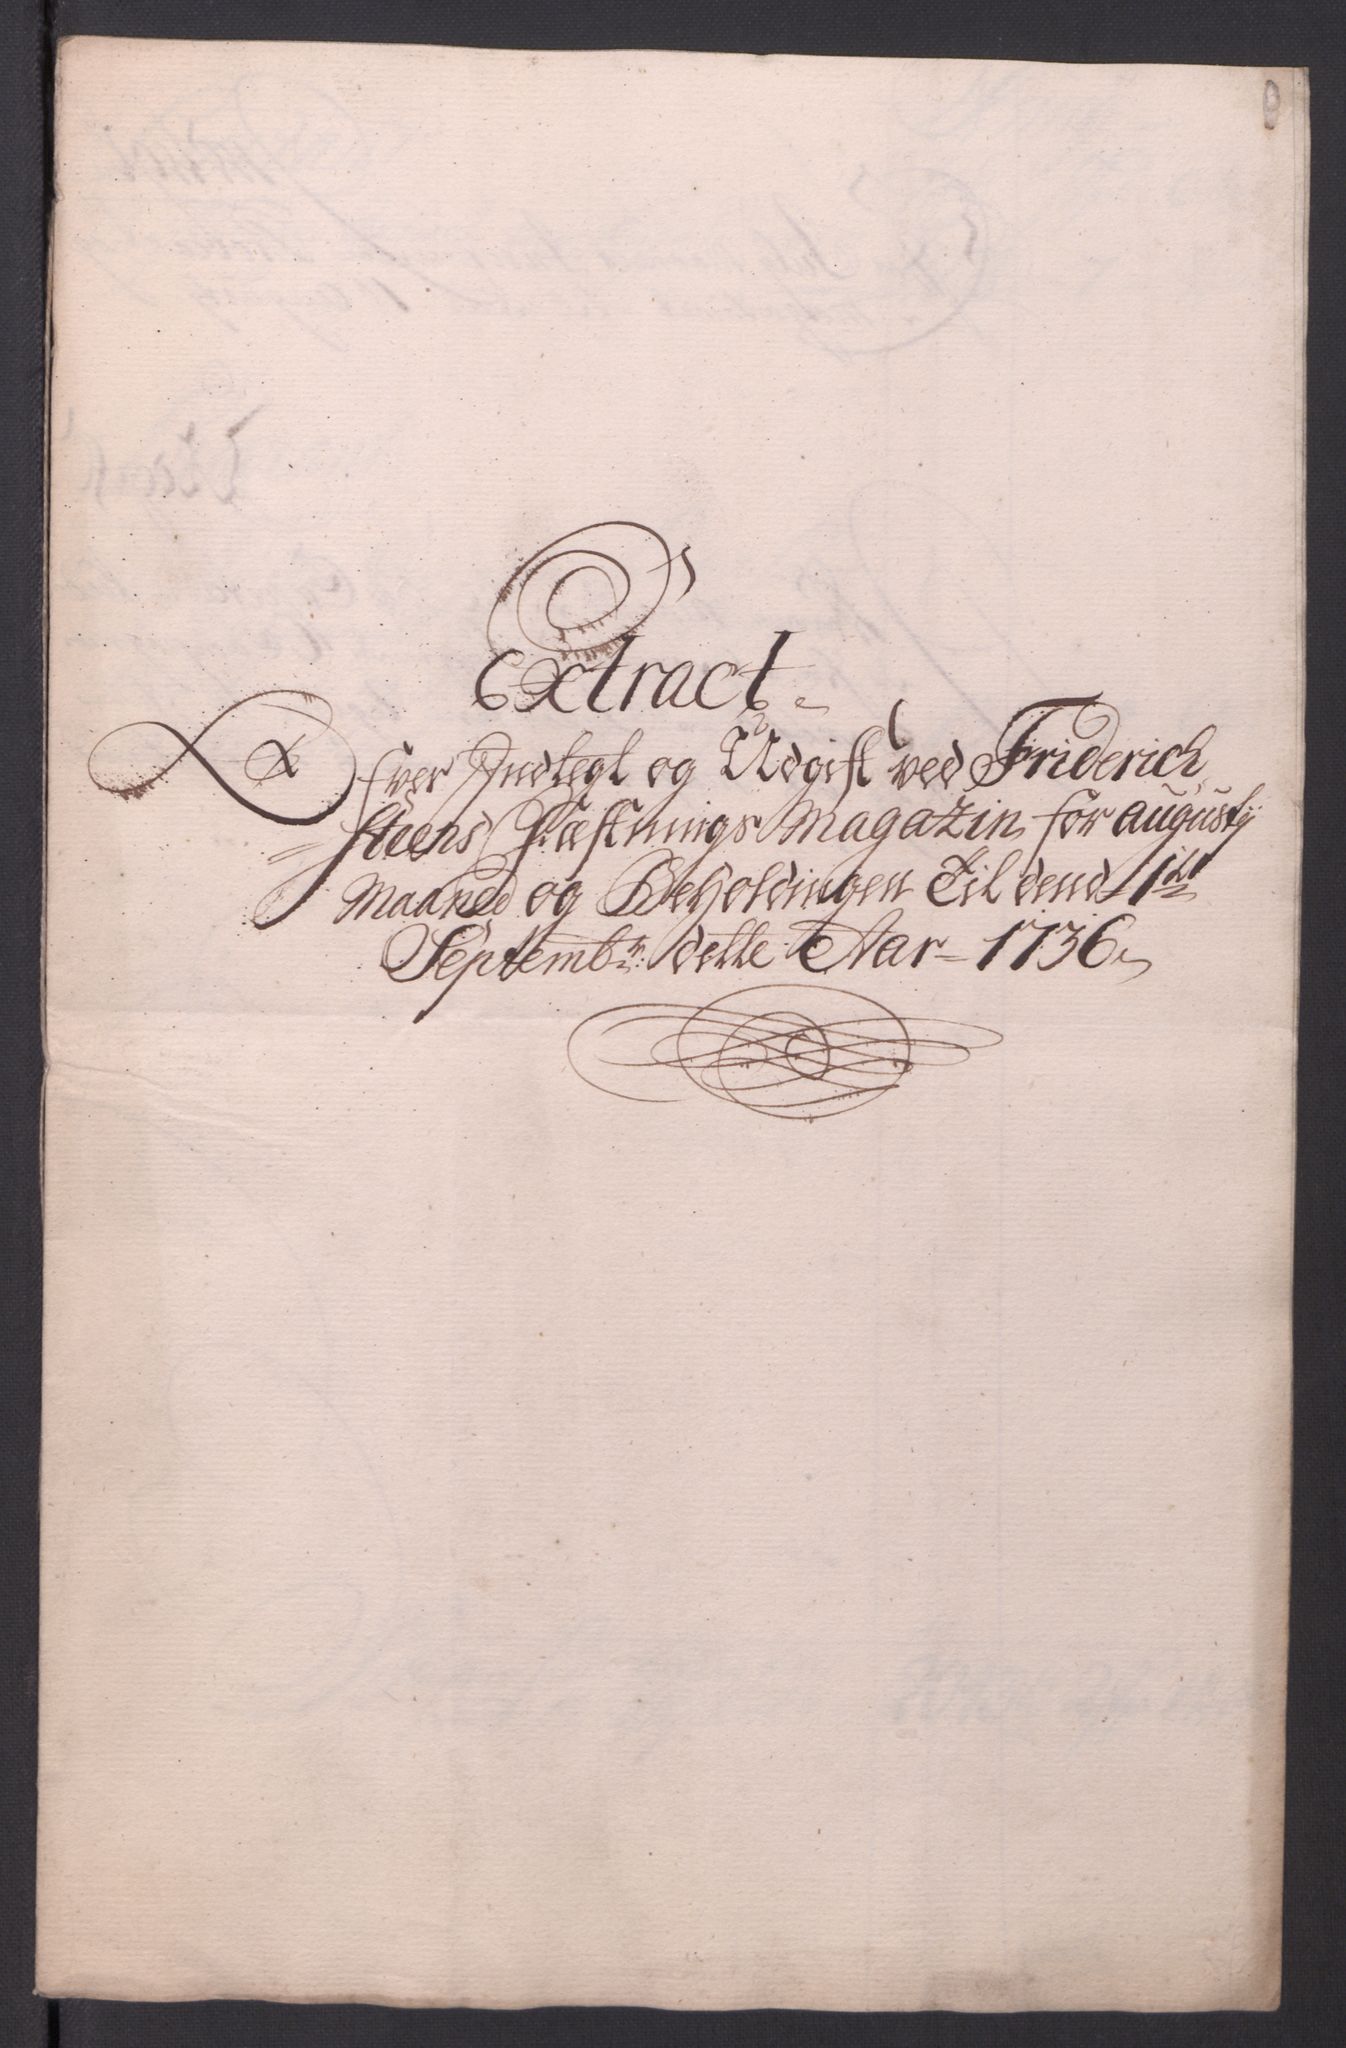 Extract
Ofver Indtegt og Udgift ved Friderich
steens Fæstnings Magazin for Augustij
Maaned og Beholdingen Til dend 1ste
Septembr: dette Aar 1736